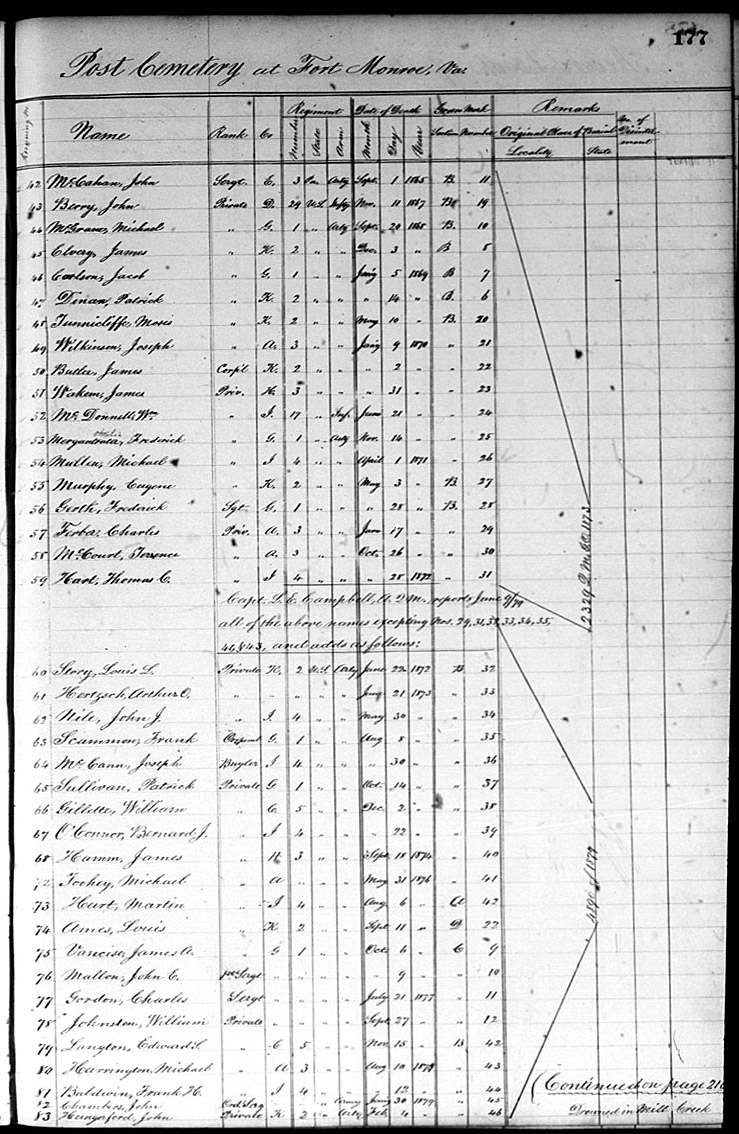 177
Post Cemetery at Fort Monroe, Va.
Regiment Date of Death Grave Mark Remarks
Name Rank Co Number State Arm Month Day Year Section Number Original Place of Burial No. of Disinterment
Locality State
42 McCahan, John Sergt. E. 3 Arty Sept. 1 1865 B. 11
43 Berry, John Private D. 29 U.S. Infty Nov. 11 1867 B 19
44 McGrane, Michael " G. 1 " Arty Sept. 20 1868 B. 10
45 Elvery, James " K. 2 " " Dec. 3 " B 8
46 Carlson, Jacob " G. 1 " " Jan'y 5 1869 B 7
47 Dinan, Patrick " K. 2 " " " 14 " B. 6
48 Tunnicliffe, Moses " K. 2 " " May 10 " B. 20
49 Wilkinson, Joseph " A. 3 " " Jan'y 9 1870 " 21
50 Butler, James Corp'l K. 2 " " " 2 " " 22
51 Wakem, James Priv. H. 3 " " " 31 " " 23
52 McDonnell, Wm " I. 17 " Inf. June 21 " " 24
53 Frederick " G. 1 " Arty Nov. 14 " " 25
54 Mullen, Michael " I 4 " " April 1 1871 " 26
55 Murphy, Eugene " K. 2 " " May 3 " B. 27
56 Groth, Frederick Sgt. G. 1 " " " 28 " B. 28
57 Ferber, Charles Priv. A. 3 " " June 17 " " 29
58 McCourt, Terrence " A. 3 " " Oct. 26 " " 30
59 Hart, Thomas C. " I 4 " " " 28 1872 " 31
Capt. L. E. Campbell, A.Q.M. reports June 9/79
all of the above names excepting Nos. 29, 31, 32, 33, 34, 35,
& 43, and adds as follows:
2329 Q.M.G.O. 1873
60 Story, Louis L. Private K. 2 U.S. Arty June 22 1872 B 32
61 Hertzsch, Arthur O. " " " " " 21 1873 " 33
62 Nile, John J. " I. 4 " " May 30 " " 34
63 Scammon, Frank Corporal G. 1 " " Aug 8 " " 35
64 McCann, Joseph Bugler I 4 " " " 30 " " 36
65 Sullivan, Patrick Private G 1 " " Oct. 14 " " 37
66 Gillette, William " C 5 " " Dec. 2 " " 38
67 O'Connor, Bernard J. " I 4 " " " 22 " " 39
68 Hamm, James " H 3 " " Sept. 18 1874 " 40
72 Toohey, Michael " A " " " May 31 1876 " 41
73 Hart, Martin " I 4 " " Aug 6 " A 42
74 Ames, Louis " K 2 " " Sept 11 " D 22
75 Vancise, James A. " G 1 " " Oct. 6 " C 9
76 Mallon, John E. 1st Sergt " " " " " 9 " " 10
77 Gordon, Charles Sergt " " " " July 21 1877 " 11
78 Johnston, William Private " " " " Sept. 27 " " 12
79 Langton, Edward S. " C 5 " " Nov. 15 " B 42
80 Harrington, Michael " A 3 " " Aug 10 1878 " 43
81 Baldwin, Frank H. " I 4 " " " 12 " " 44
82 Chambers, John Ord. Serg " Army Jan'y 30 1879 " 45
83 Hungerford, John Private K 2 " Arty Feb. 4 " " 46
of 1879
(Continued on page 210
Drowned in Mill Creek